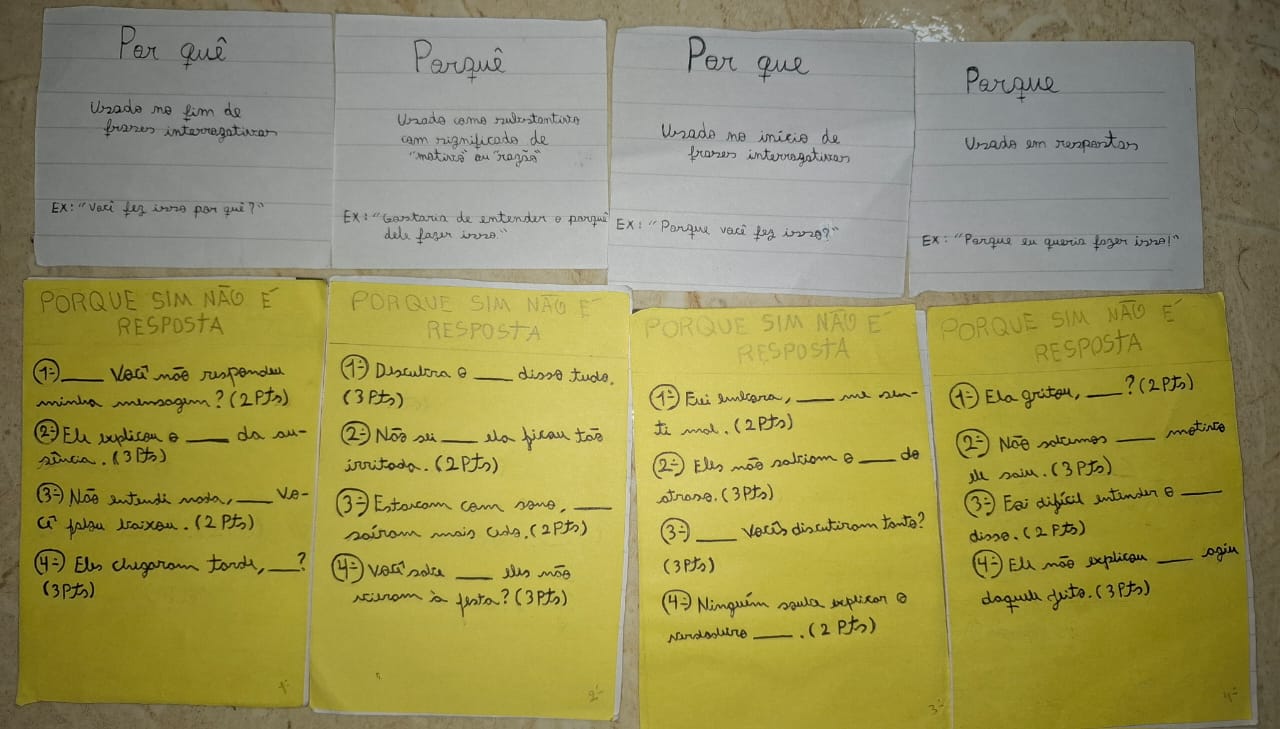 Por quê
Usado no fim de
frases interrogativas
Ex: "Você fez isso por quê?"
Porquê
Usado como substantivo
com significado de
"motivo" ou "razão"
Ex: "Gostaria de entender o porquê
dele fazer isso."
Por que
Usado no início de
frases interrogativas
Ex: "Porque você fez isso?"
Porque
Usado em respostas
Ex: "Porque eu queria fazer isso!"
PORQUE SIM NÃO É
RESPOSTA
1- ____ Você não respondeu
minha mensagem? (2 Pts)
2- Ele explicou o ____ da au-
sência. (3 Pts)
3- Não entendi nada, ____ Vo-
cê falou baixou. (2 Pts)
4- Eles chegaram tarde, ____?
(3 Pts)
1-
PORQUE SIM NÃO É
RESPOSTA
1- Descubra o ____ disso tudo.
(3 Pts)
2- Não sei ____ ela ficou tão
irritada. (2 Pts)
3- Estavam com sono, ____
saíram mais cedo. (2 Pts)
4- Você sabe ____ eles não
vieram à festa? (3 Pts)
2-
PORQUE SIM NÃO É
RESPOSTA
1- Fui embora, ____ me sen-
ti mal. (2 Pts)
2- Eles não sabiam o ____ do
atraso. (3 Pts)
3- ____ Vocês discutiram tanto?
(3 Pts)
4- Ninguém soube explicar o
verdadeiro ____. (2 Pts)
3-
PORQUE SIM NÃO É
RESPOSTA
1- Ela gritou, ____? (2 Pts)
2- Não sabemos ____ motivo
ele saiu. (3 Pts)
3- Foi difícil entender o ____
disso. (2 Pts)
4- Ele não explicou ____ agiu
daquele jeito. (3 Pts)
4-